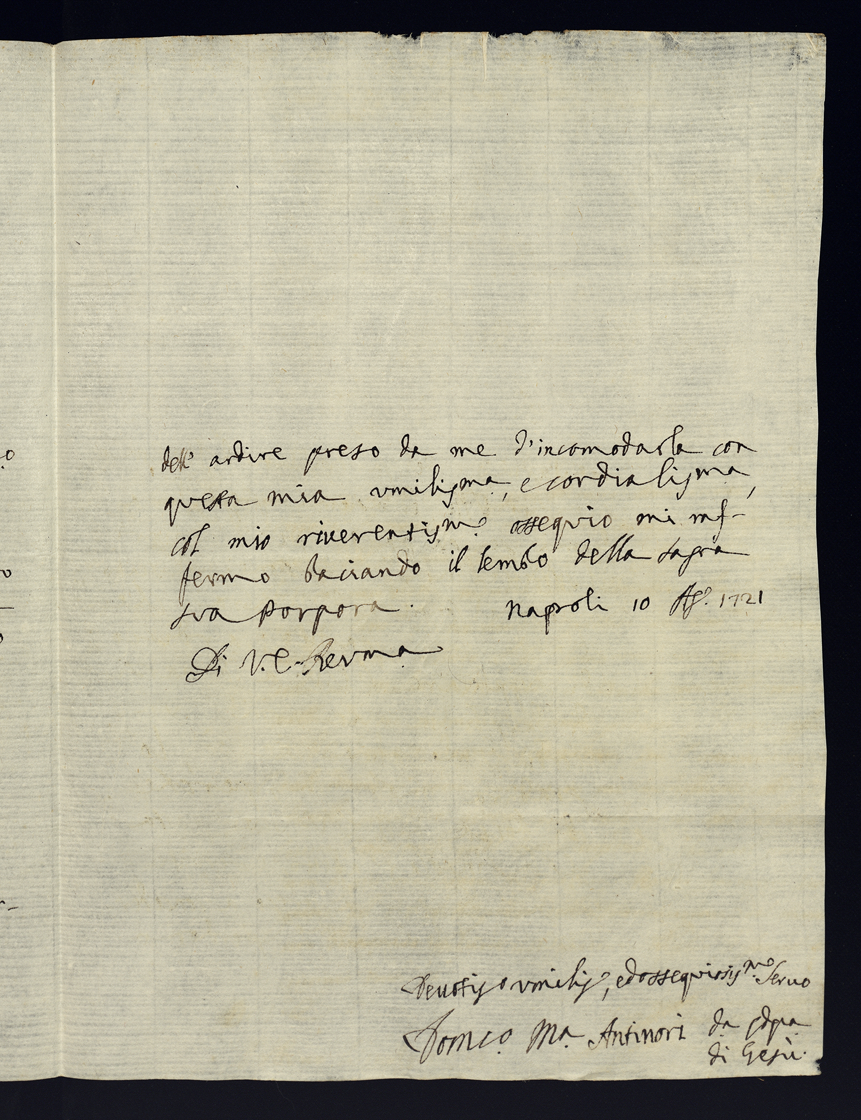 dell' ardire preso da me d'incomodarla con
questa mia vmiliss.ma, e cordialiss.ma,
col mio riverentiss.mo ossequio mi raf-
fermo baciando il lembo della sagra
sva porpora. Napoli 10 Ag.o 1721
Di V. E. Rev.ma
Deuotiss.o vmiliss.o, ed ossequiosiss.mo Seruo
Dom.co M.a Antinori da
di Gesù.